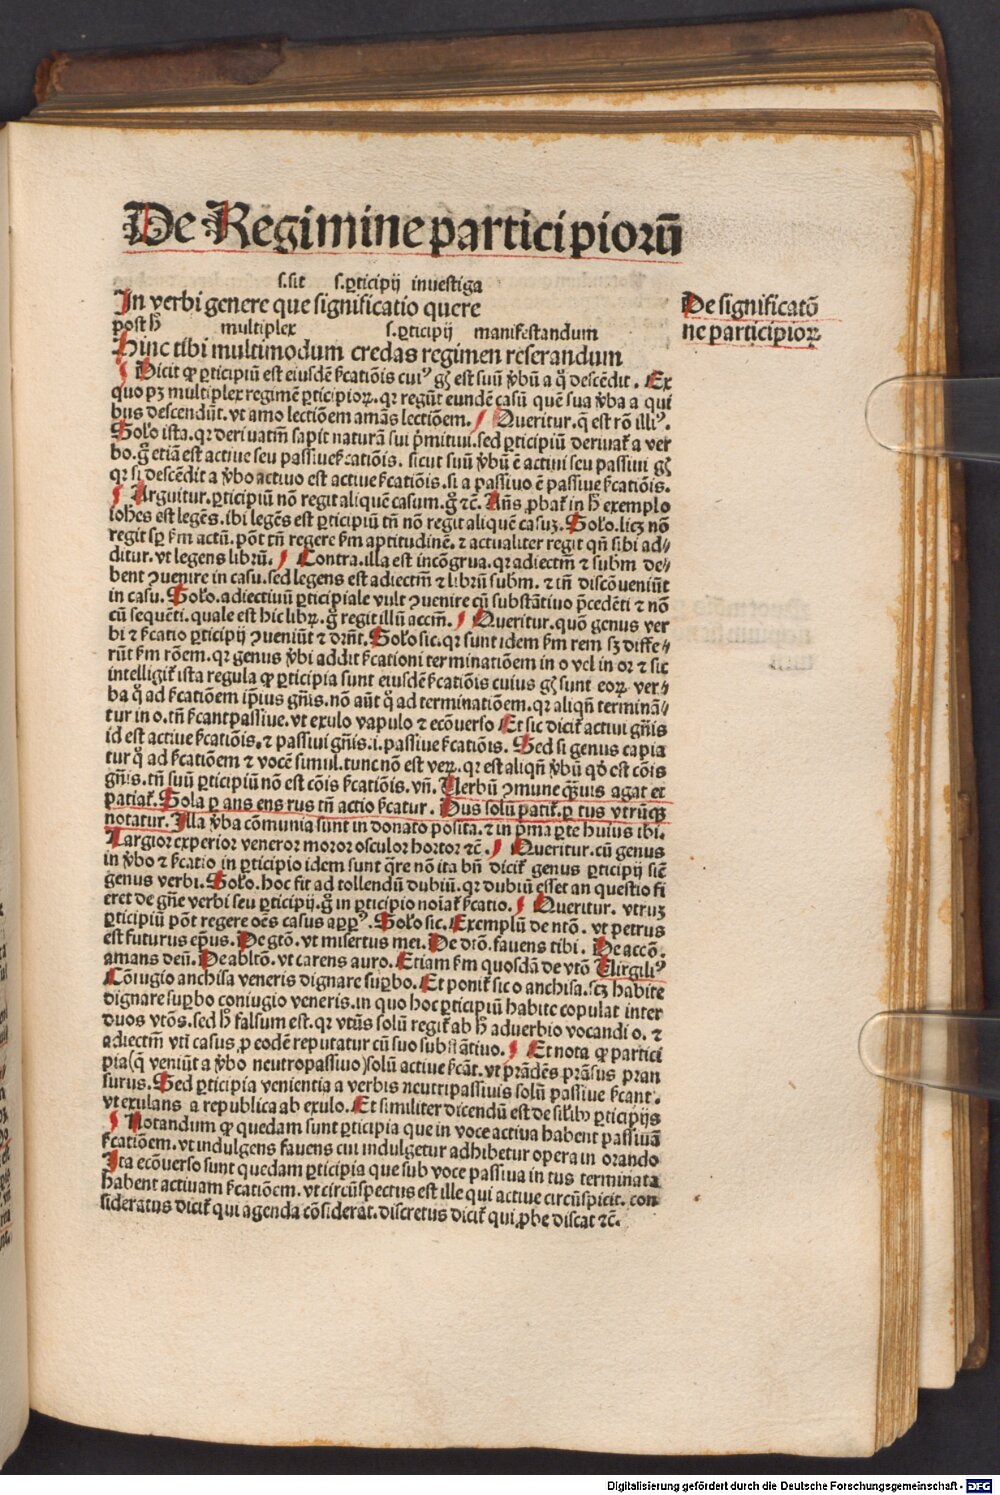 De Regimine participiorū
s.sit s.ꝑticipij inuestiga
In verbi genere que significatio quere
De significatō
ne participioꝝ
post h̄ multiplex s.ꝑticipij manifestandum
Hinc tibi multimodum credas regimen reserandum
¶ Dicit ꝙ ꝑticipiū est eiusdē ẜcatiōis cuiꝰ gn̄is est suū v̄bū a q̊ descēdit. Ex
quo pꝫ multiplex regimē ꝑticipioꝝ. qꝛ regūt eundē casū quē sua v̄ba a qui
bus descendūt. vt amo lectiōem amās lectiōem. ¶ Queritur. q̄ est rō illiꝰ.
Solo ista. qꝛ deriuatm̄ sapit naturā sui p̄mitiui. sed ꝑticipiū deriuat̄ a ver
bo. g̊ etiā est actiue seu passiue ẜcatiōis. sicut suū v̄bū ē actiui seu passiui
qꝛ si descēdit a v̄bo actiuo est actiue ẜcatiōis. si a passiuo ē passiue ẜcatiōis.
¶ Arguitur. ꝑticipiū nō regit aliquē casum. g̊ ⁊c̄. Añs ꝓbat̄ in h̄ exemplo
iohēs est legēs. ibi legēs est ꝑticipiū tn̄ nō regit aliquē casuꝫ. Solo. licꝫ nō
regit sꝑ ẜm actū. pōt tn̄ regere ẜm aptitudinē. ⁊ actualiter regit qn̄ sibi ad⸗
ditur. vt legens librū. ¶ Contra. illa est incōgrua. qꝛ adiectm̄ ⁊ subm̄ de⸗
bent ꝯuenire in casu. sed legens est adiectm̄ ⁊ librū subm̄. ⁊ tn̄ discōueniūt
in casu. Solo. adiectiuū ꝑticipiale vult ꝯuenire cū substātiuo p̄cedēti ⁊ nō
cū sequēti. quale est hic libꝝ. g̊ regit illū accm̄. ¶ Queritur. quō genus ver
bi ⁊ ẜcatio ꝑticipij ꝯueniūt ⁊ dr̄nt. Solo sic. qꝛ sunt idem ẜm rem sꝫ diffe⸗
rūt ẜm rōem. qꝛ genus v̄bi addit ẜcationi terminatiōem in o vel in or ⁊ sic
intelligit̄ ista regula ꝙ ꝑticipia sunt eiusdē ẜcatiōis cuius gn̄is sunt eoꝝ ver⸗
ba q̊ ad ẜcatiōem ip̄ius gn̄is. nō aūt q̊ ad terminatiōem. qꝛ aliqn̄ terminā⸗
tur in o. tn̄ ẜcant passiue. vt exulo vapulo ⁊ ecōuerso Et sic dicit̄ actiui gn̄is
id est actiue ẜcatiōis. ⁊ passiui gn̄is. i. passiue ẜcatiōis. Sed si genus capia
tur q̊ ad ẜcatiōem ⁊ vocē simul. tunc nō est veꝝ. qꝛ est aliqn̄ v̄bū qd̄ est cōis
gn̄is. tn̄ suū ꝑticipiū nō est cōis ẜcatiōis. vn̄. Uerbū ꝯmune qͣuis agat et
patiat̄. Sola ꝑ ans ens rus tn̄ actio ẜcatur. Dus solū patit̄. ꝑ tus vtrūqꝫ
notatur. Illa v̄ba cōmunia sunt in donato posita. ⁊ in p̄ma ꝑte huius ibi.
Largior experior veneror moror osculor hortor ⁊c̄. ¶ Queritur. cū genus
in v̄bo ⁊ ẜcatio in ꝑticipio idem sunt q̄re nō ita bn̄ dicit̄ genus ꝑticipij sic̄
genus verbi. Solo. hoc fit ad tollendū dubiū. qꝛ dubiū esset an questio fi
eret de gn̄e verbi seu ꝑticipij. g̊ in ꝑticipio noīat̄ ẜcatio. ¶ Queritur. vtruꝫ
ꝑticipiū pōt regere oēs casus Solo sic. Exemplū de ntō. vt petrus
est futurus ep̄us. De gtō. vt misertus mei. De dtō. fauens tibi. De accō.
amans deū. De abltō. vt carens auro. Etiam ẜm quosdā de vtō Uirgiliꝰ
Cōiugio anchisa veneris dignare suꝑbo. Et ponit̄ sic o anchisa. scꝫ habite
dignare suꝑbo coniugio veneris. in quo hoc ꝑticipiū habite copulat inter
duos vtōs. sed h̄ falsum est. qꝛ vtūs solū regit̄ ab h̄ aduerbio vocandi o. ⁊
adiectm̄ vti casus ꝓ eodē reputatur cū suo substātiuo. ¶ Et nota ꝙ partici
pia (q̄ veniūt a v̄bo neutropassiuo) solū actiue ẜcāt. vt prādēs prāsus pran
surus. Sed ꝑticipia venientia a verbis neutripassiuis solū passiue ẜcant.
vt exulans a republica ab exulo. Et similiter dicendū est de sil̄ib ꝑticipijs
¶ Notandum ꝙ quedam sunt ꝑticipia que in voce actiua habent passiuā
ẜcatiōem. vt indulgens fauens cui indulgetur adhibetur opera in orando
Ita ecōuerso sunt quedam ꝑticipia que sub voce passiua in tus terminata
habent actiuam ẜcatiōem. vt circūspectus est ille qui actiue circūspicit. con
sideratus dicit̄ qui agenda cōsiderat. discretus dicit̄ qui ꝓbe discat ⁊c̄.
Digitalisierung gefördert durch die Deutsche Forschungsgemeinschaft - DFG